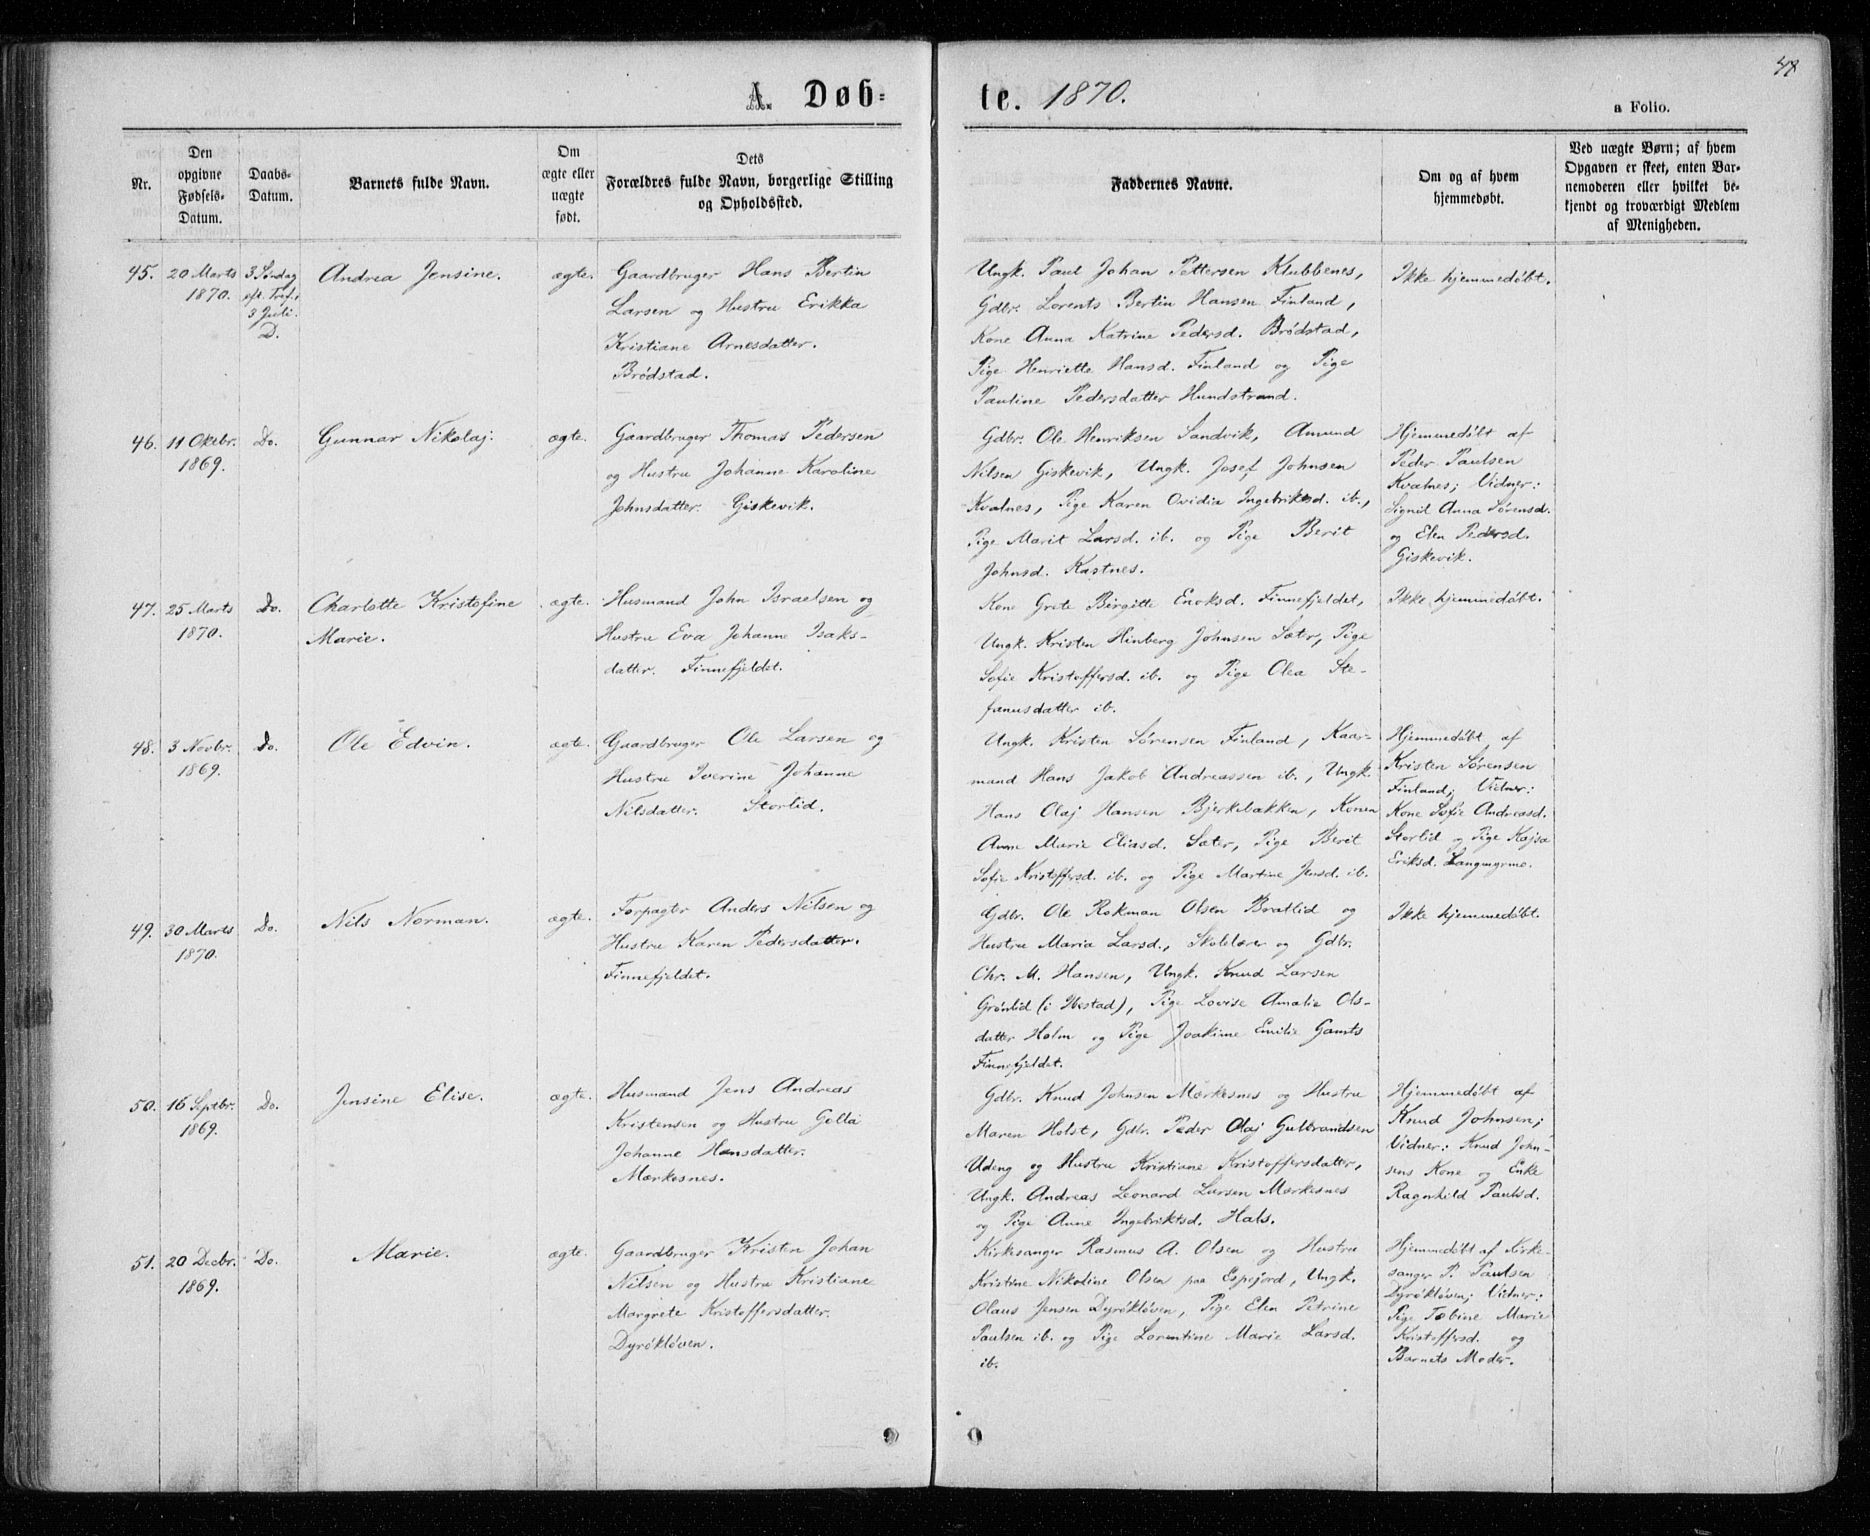 48
A. Døb=
te. 1870.
a Folio.
Nr.
Den
opgivne
Fødsels-
Datum.
Daabs-
Datum.
Barnets fulde Navn.
Om
ægte eller
uægte
født.
Dets
Forældres fulde Navn, borgerlige Stilling
og Opholdssted.
Faddernes Navne.
Om og af hvem
hjemmedøbt.
Ved uægte Børn; af hvem
Opgaven er skeet, enten Bar-
nemoderen eller hvilket be-
kjendt og troværdigt Medlem
af Menigheden.
45.
20 Marts
1870.
3 Søndag
eft. Tref.
3 Juli.
D.
Andrea Jensine.
ægte.
Gaardbruger Hans Bertin
Larsen og Hustru Erikka
Kristiane Arnesdatter.
Brødstad.
Ungk. Paul Johan Pettersen Klubbenes,
Gdbr. Lorents Bertin Hansen Finland,
Kone Anna Katrine Pedersd. Brødstad,
Pige Henriette Hansd. Finland og Pige
Pauline Pedersdatter Hundstrand.
Ikke hjemmedøbt.
46.
11 Oktbr.
1869.
Do.
Gunnar Nikolaj.
ægte.
Gaardbruger Thomas Pedersen
og Hustru Johanne Karoline
Johnsdatter. Giskevik.
Gdbr. Ole Henriksen Sandvik, Amund
Nilsen Giskevik, Ungk. Josef Johnsen
Kvalnes, Pige Karen Ovidia Ingebriktsd. ib.,
Pige Marit Larsd. ib. og Pige Berit
Johnsd. Kastnes.
Hjemmedøbt af
Peder Paulsen
Kvalnes; Vidner:
Signil Anna Sørensd.
og Elen Pedersd.
Giskevik.
47.
25 Marts
1870.
Do.
Charlotte Kristofine
Marie.
ægte.
Husmand John Israelsen og
Hustru Eva Johanne Isaks-
datter. Finnefjeldet.
Kone Grete Birgitte Enoksd. Finnefjeldet,
Ungk. Kristen Hinberg Johnsen Sæter, Pige
Sofie Kristoffersd. ib. og Pige Olea Ste-
fanusdatter ib.
Ikke hjemmedøbt.
48.
3 Novbr.
1869.
Do.
Ole Edvin.
ægte.
Gaardbruger Ole Larsen og
Hustru Iverine Johanne
Nilsdatter. Storlid.
Ungk. Kristen Sørensen Finland, Kaar-
mand Hans Jakob Andreassen ib., Ungk.
Hans Olaj Hansen Bjerkebakken, Konen
Anne Marie Eliasd. Sæter, Pige Berit
Sofie Kristoffersd. ib. og Pige Martine Jensd. ib.
Hjemmedøbt af
Kristen Sørensen
Finland; Vidner:
Kone Sofie Andreasd.
Storlid og Pige Kajsa
Eriksd.
49.
30 Marts
1870.
Do.
Nils Norman.
ægte.
Forpagtr Anders Nilsen og
Hustru Karen Pedersdatter.
Finnefjeldet.
Gdbr. Ole Rokman Olsen Bratlid og
Hustru Maria Larsd., Skolelærer og Gdbr.
Chr. M. Hansen, Ungk. Knud Larsen
Grønlid (i Ibestad), Pige Lovise Amalie Ols-
datter Holm og Pige Joakime Emilie Gamts
Finnefjeldet.
Ikke hjemmedøbt.
50.
16 Septbr.
1869.
Do.
Jensine Elise.
ægte.
Husmand Jens Andreas
Kristensen og Hustru Gølla
Johanne Hansdatter.
Mærkesnes.
Gdbr. Knud Johnsen Mærkesnes og Hustru
Maren Holst, Gdbr. Peder Olaj Gulbrandsen
Udeng og Hustru Kristiane Kristoffersdatter,
Ungk. Andreas Leonard Larsen Mærkesnes
og Pige Anne Ingebriktsd. Hals.
Hjemmedøbt af
Knud Johnsen;
Vidner: Knud John-
sens Kone og Enke
Ragnhild Paulsd.
51.
20 Decbr.
1869.
Do.
Marie.
ægte.
Gaardbruger Kristen Johan
Nilsen og Hustru Kristiane
Margrete Kristoffersdatter.
Dyrøkløven.
Kirksanger Rasmus A. Olsen og Hustru
Kristine Nikoline Olsen paa Espejord, Ungk.
Olaus Jensen Dyrøkløven, Pige Elen Petrine
Paulsen ib. og Pige Lorentine Marie Larsd.
ib.
Hjemmedøbt af Kirke-
sanger P. Paulsen
Dyrøkløven; Vidner:
Pige Tobine Marie
Kristoffersd. og
Barnets Moder.